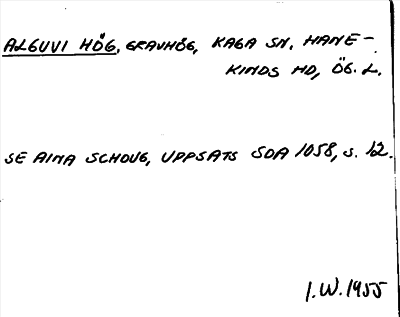 ALGUVI HÖG, GRAVHÖG, KAGA SN, HANE-
KINDS HD, ÖG. L.
SE AINA SCHOUG, UPPSATS SDA 1058, S. 12.
I.W. 1955